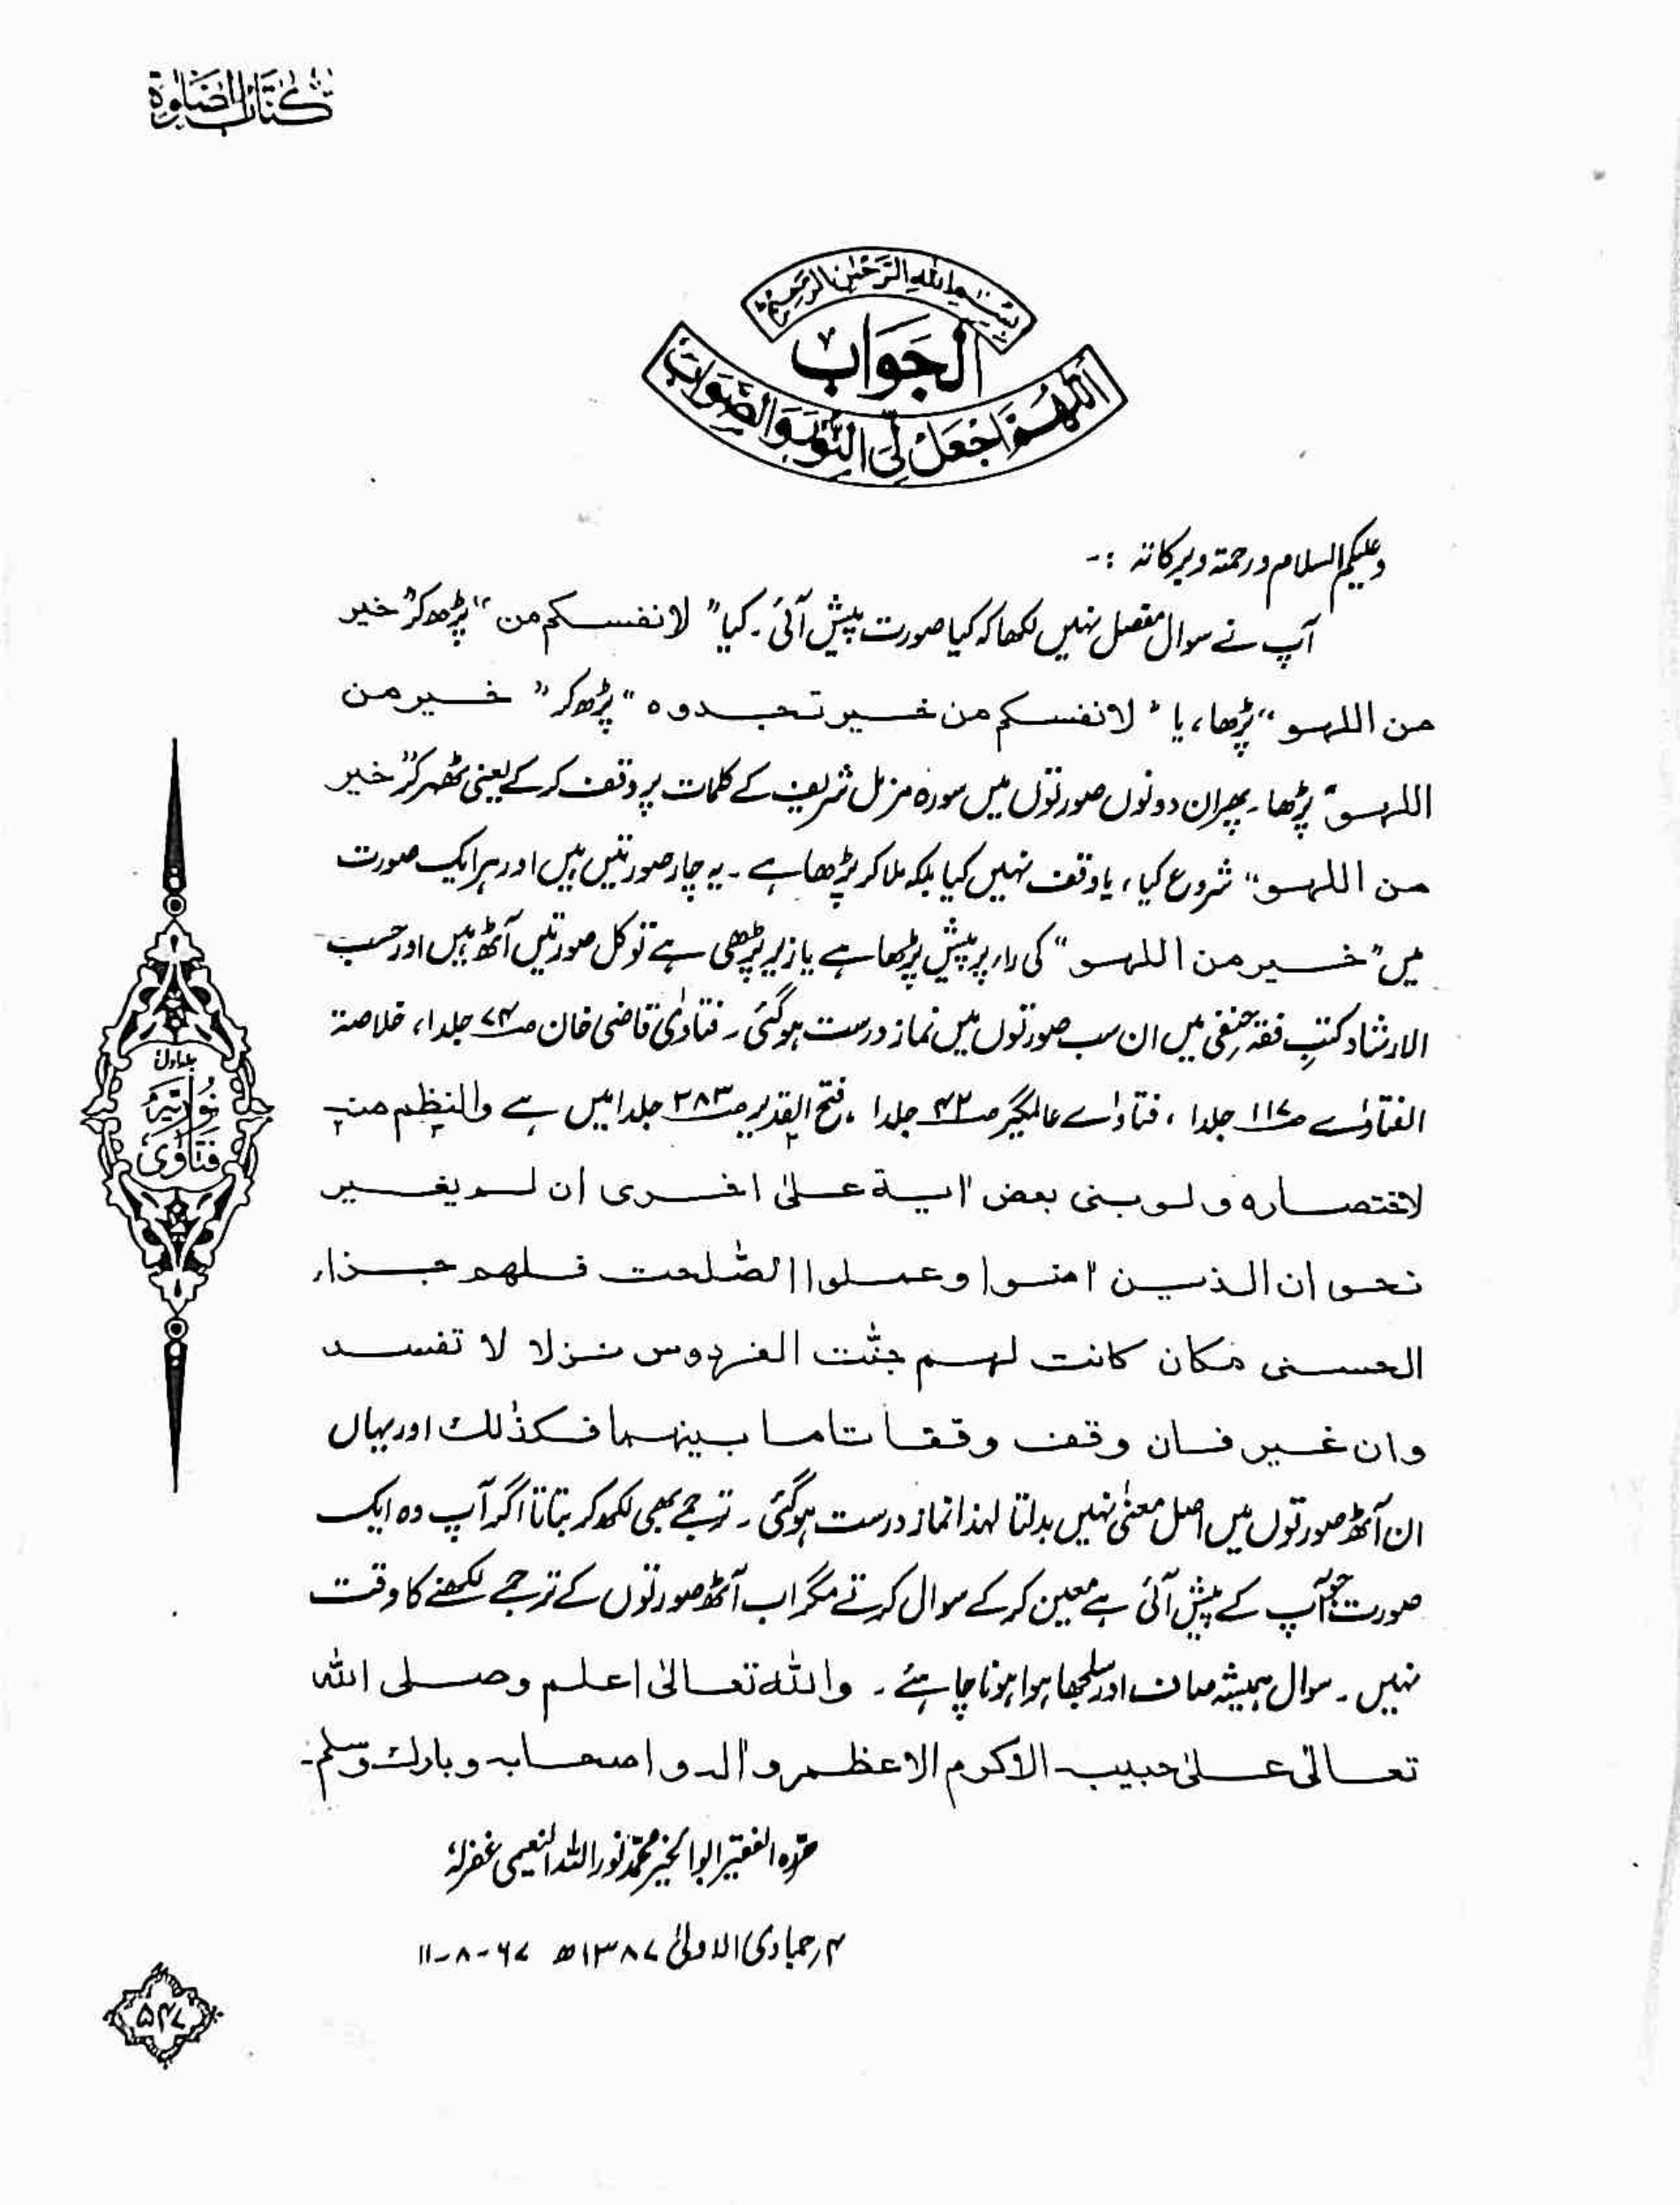 كتاب الصلوة
بسم الله الرحمن الرحيم
الجواب
اللهم اجعل لی النور والصواب
وعلیکم السلام ورحمتہ وبرکاتہ :-
آپ نے سوال مفصل نہیں لکھا کہ کیا صورت پیش آئی۔ کیا ”لانفسکم من“ پڑھ کر ”خیر
من اللہو“ پڑھا، یا ”لانفسکم من خیر تجدوہ“ پڑھ کر ”خیر من
اللہو“ پڑھا۔ پھر ان دونوں صورتوں میں سورہ مزمل شریف کے کلمات پر وقف کر کے یعنی ٹھہر کر ”خیر
من اللہو“ شروع کیا، یا وقف نہیں کیا بلکہ ملا کر پڑھا ہے۔ یہ چار صورتیں ہیں اور ہر ایک صورت
میں ”خیر من اللہو“ کی راء پر پیش پڑھا ہے یا زیر پڑھی ہے تو کل صورتیں آٹھ ہیں اور حسب
الارشاد کتبِ فقہ حنفی میں ان سب صورتوں میں نماز درست ہوگئی۔ فتاویٰ قاضی خان صـ۷۴ جلد۱، خلاصۃ
الفتاوٰے صـ۱۱۷ جلد۱، فتاوٰے عالمگیر صـ۴۲ جلد۱، فتح القدیر صـ۲۸۳ جلد۱ میں ہے والنظم منہ
لاختصارہ ولو بنی بعض اٰیۃ علیٰ اخری ان لم یغیر
نحو ان الذین اٰمنوا وعملوا الصّٰلحت فلهم جزاء
الحسنی مکان کانت لهم جنّٰت الفردوس نزلا لا تفسد
وان غیر فان وقف وقفا تاما بینهما فکذٰلك اور یہاں
ان آٹھ صورتوں میں اصل معنیٰ نہیں بدلتا لہذا نماز درست ہوگئی۔ ترجمے بھی لکھ کر بتاتا اگر آپ وہ ایک
صورت جو آپ کے پیش آئی ہے معین کر کے سوال کرتے مگر اب آٹھ صورتوں کے ترجمے لکھنے کا وقت
نہیں۔ سوال ہمیشہ صاف اور سلجھا ہوا ہونا چاہئے۔ واللہ تعالیٰ اعلم وصلی اللہ
تعالیٰ علیٰ حبیبہ الاکرم الاعظم واٰلہ واصحابہ وبارك وسلم۔
حرّرہ الفقیر ابوالخیر محمّد نور اللہ النعیمی غفرلہٗ
۴؍ جمادی الاولیٰ ۱۳۸۷ھ ۶۷-۸-۱۱
جلد اول
نوریہ
فتاوی
۵۴۷